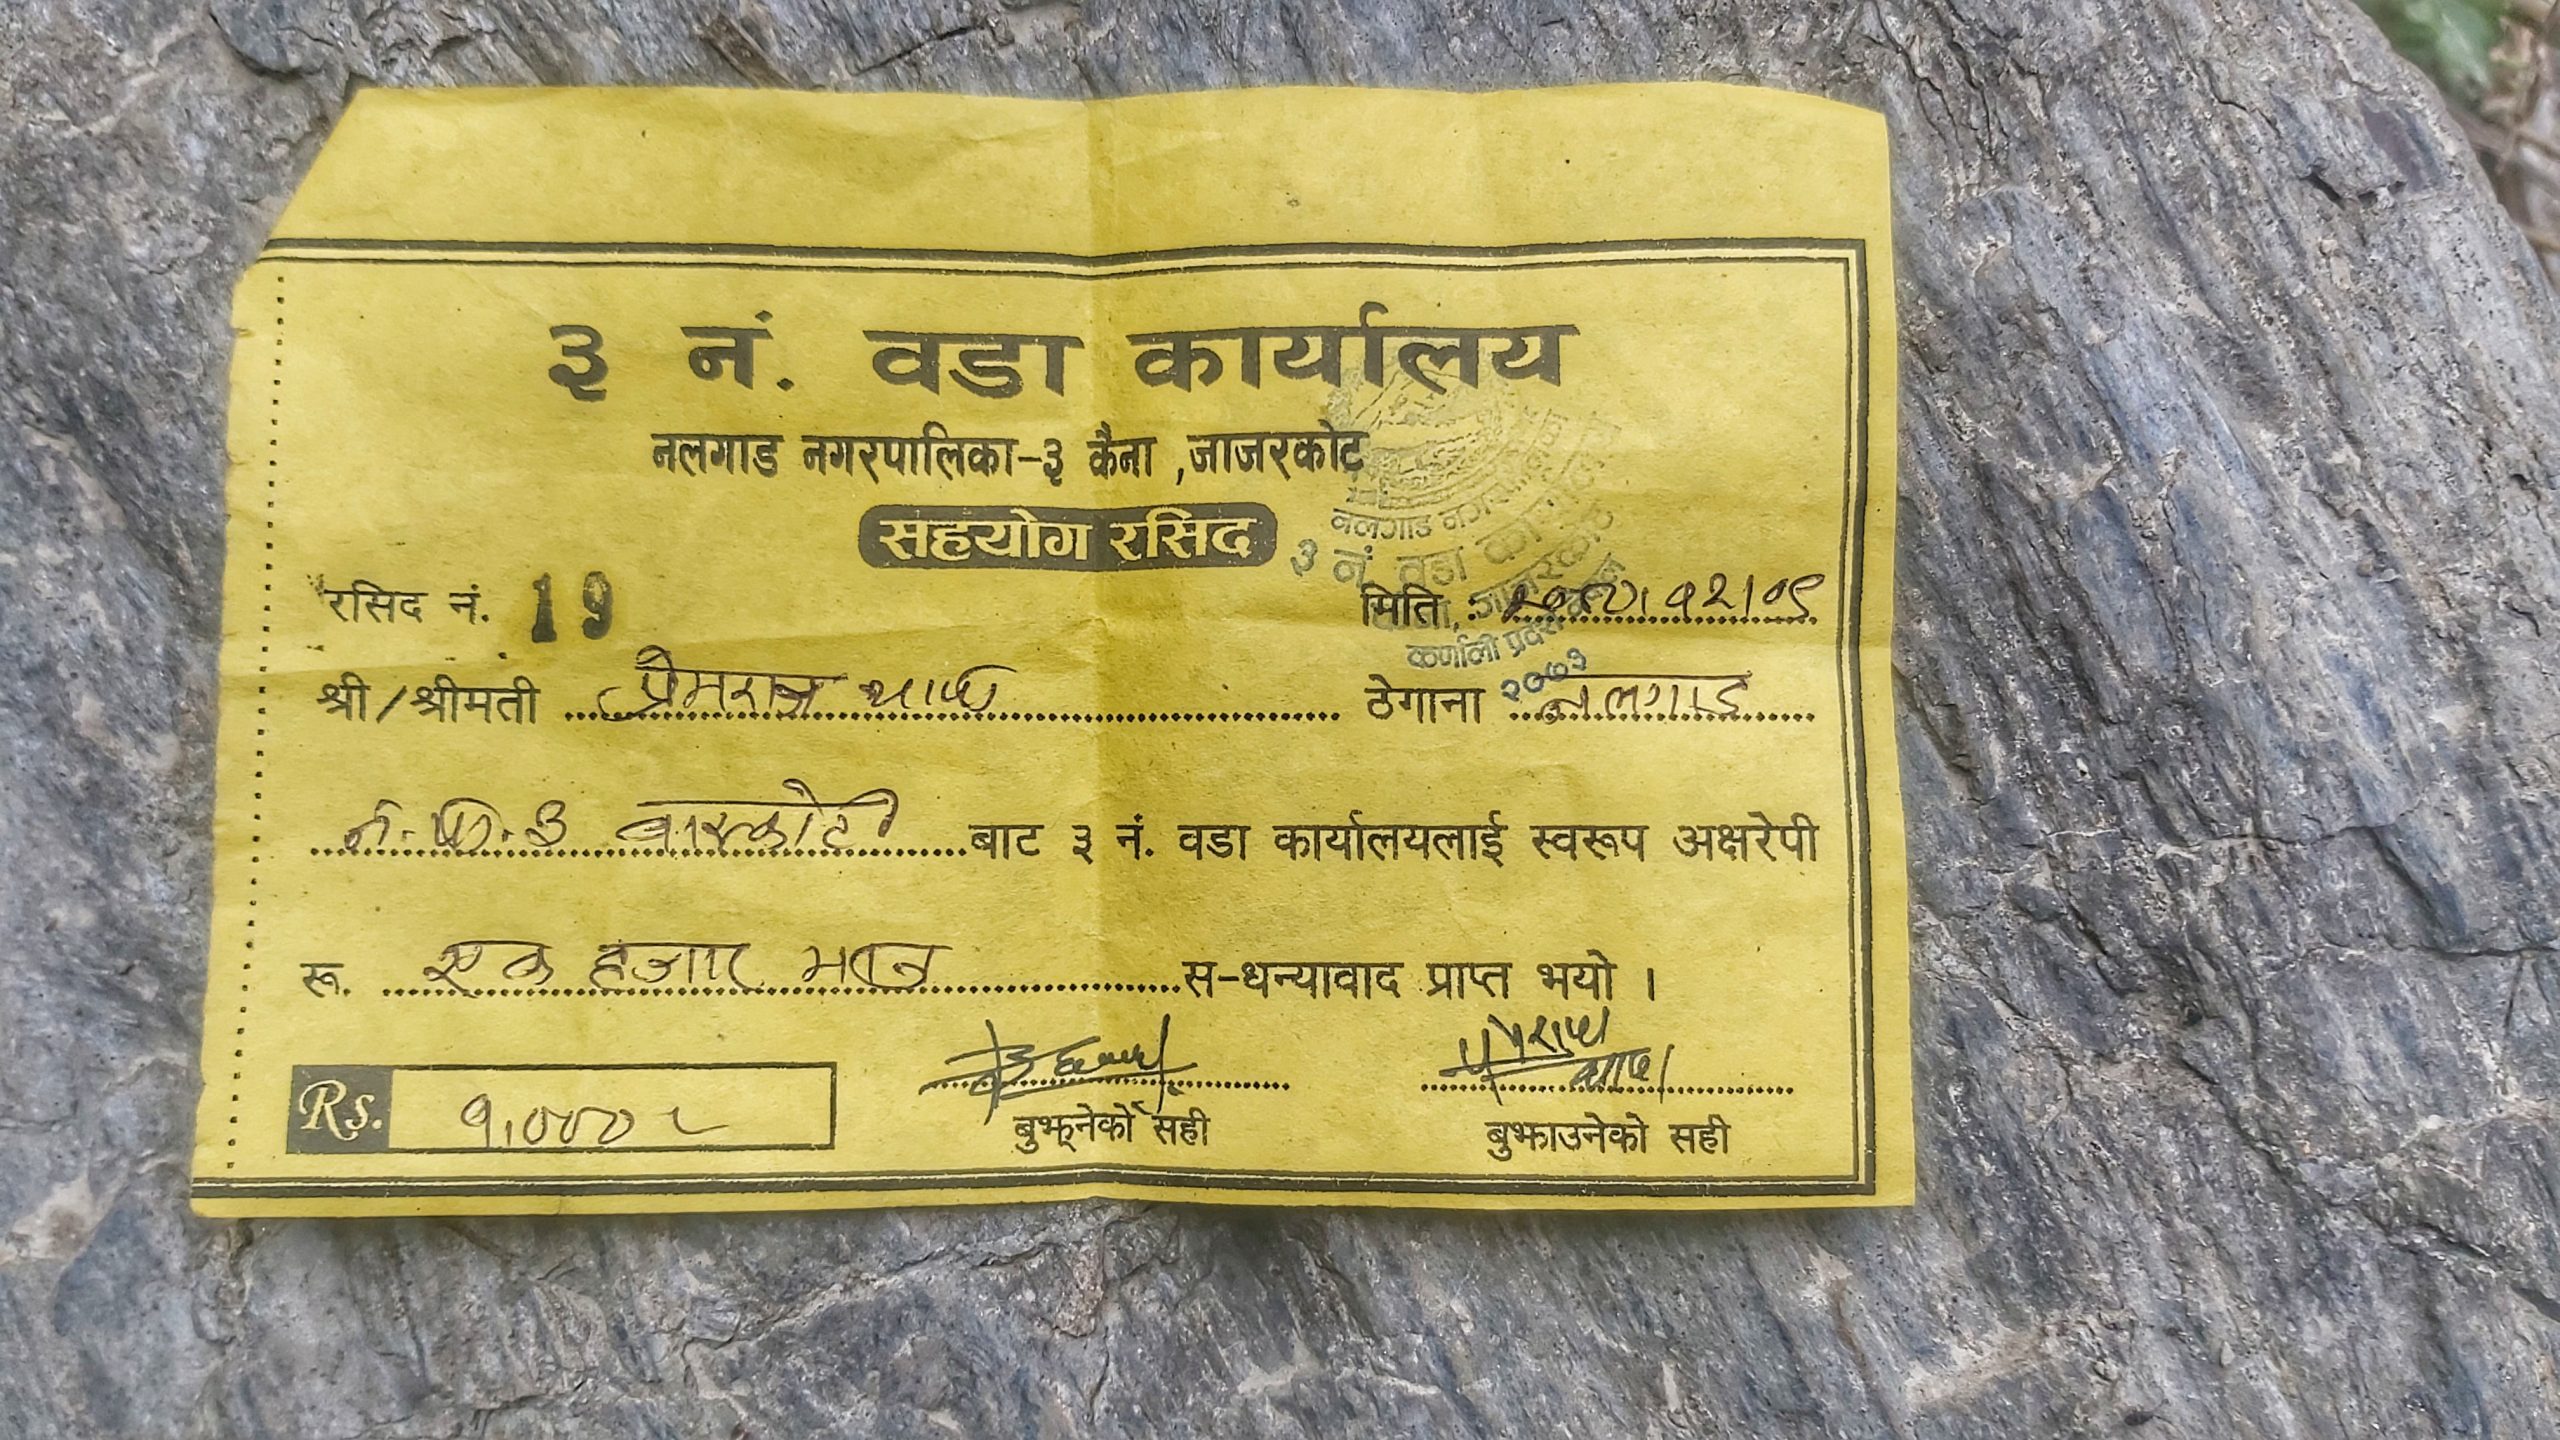 ३ नं. वडा कार्यालय
नलगाड नगरपालिका-३ कैना ,जाजरकोट
सहयोग रसिद
नलगाड नगरपालिका
३ नं. वडा कार्यालय
जाजरकोट
कर्णाली प्रदेश
२०७३
रसिद नं. 19
मिति :
श्री/श्रीमती प्रेमराज थापा ठेगाना नलगाड
न.पा.३ बारकोटे बाट ३ नं. वडा कार्यालयलाई स्वरूप अक्षरेपी
रू. एक हजार मात्र स-धन्यावाद प्राप्त भयो ।
Rs. १,०००/-
बुझ्नेको सही बुझाउनेको सही